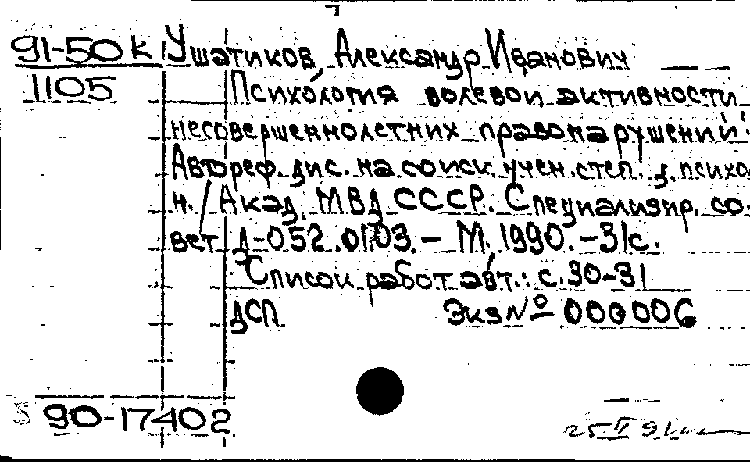 91-50к Ушатиков, Александр Иванович
1105 Психология волевой активности
несовершеннолетних правонарушений:
Автореф. дис. на соиск. учен. степ. д. психо
н. / Акад. МВД СССР. Специализир. со-
вет Д-052.01.03. - М., 1990. - 31с.
Список работ авт.: с. 30-31
ДСП Экз № 000006
90-17402
25.V 91